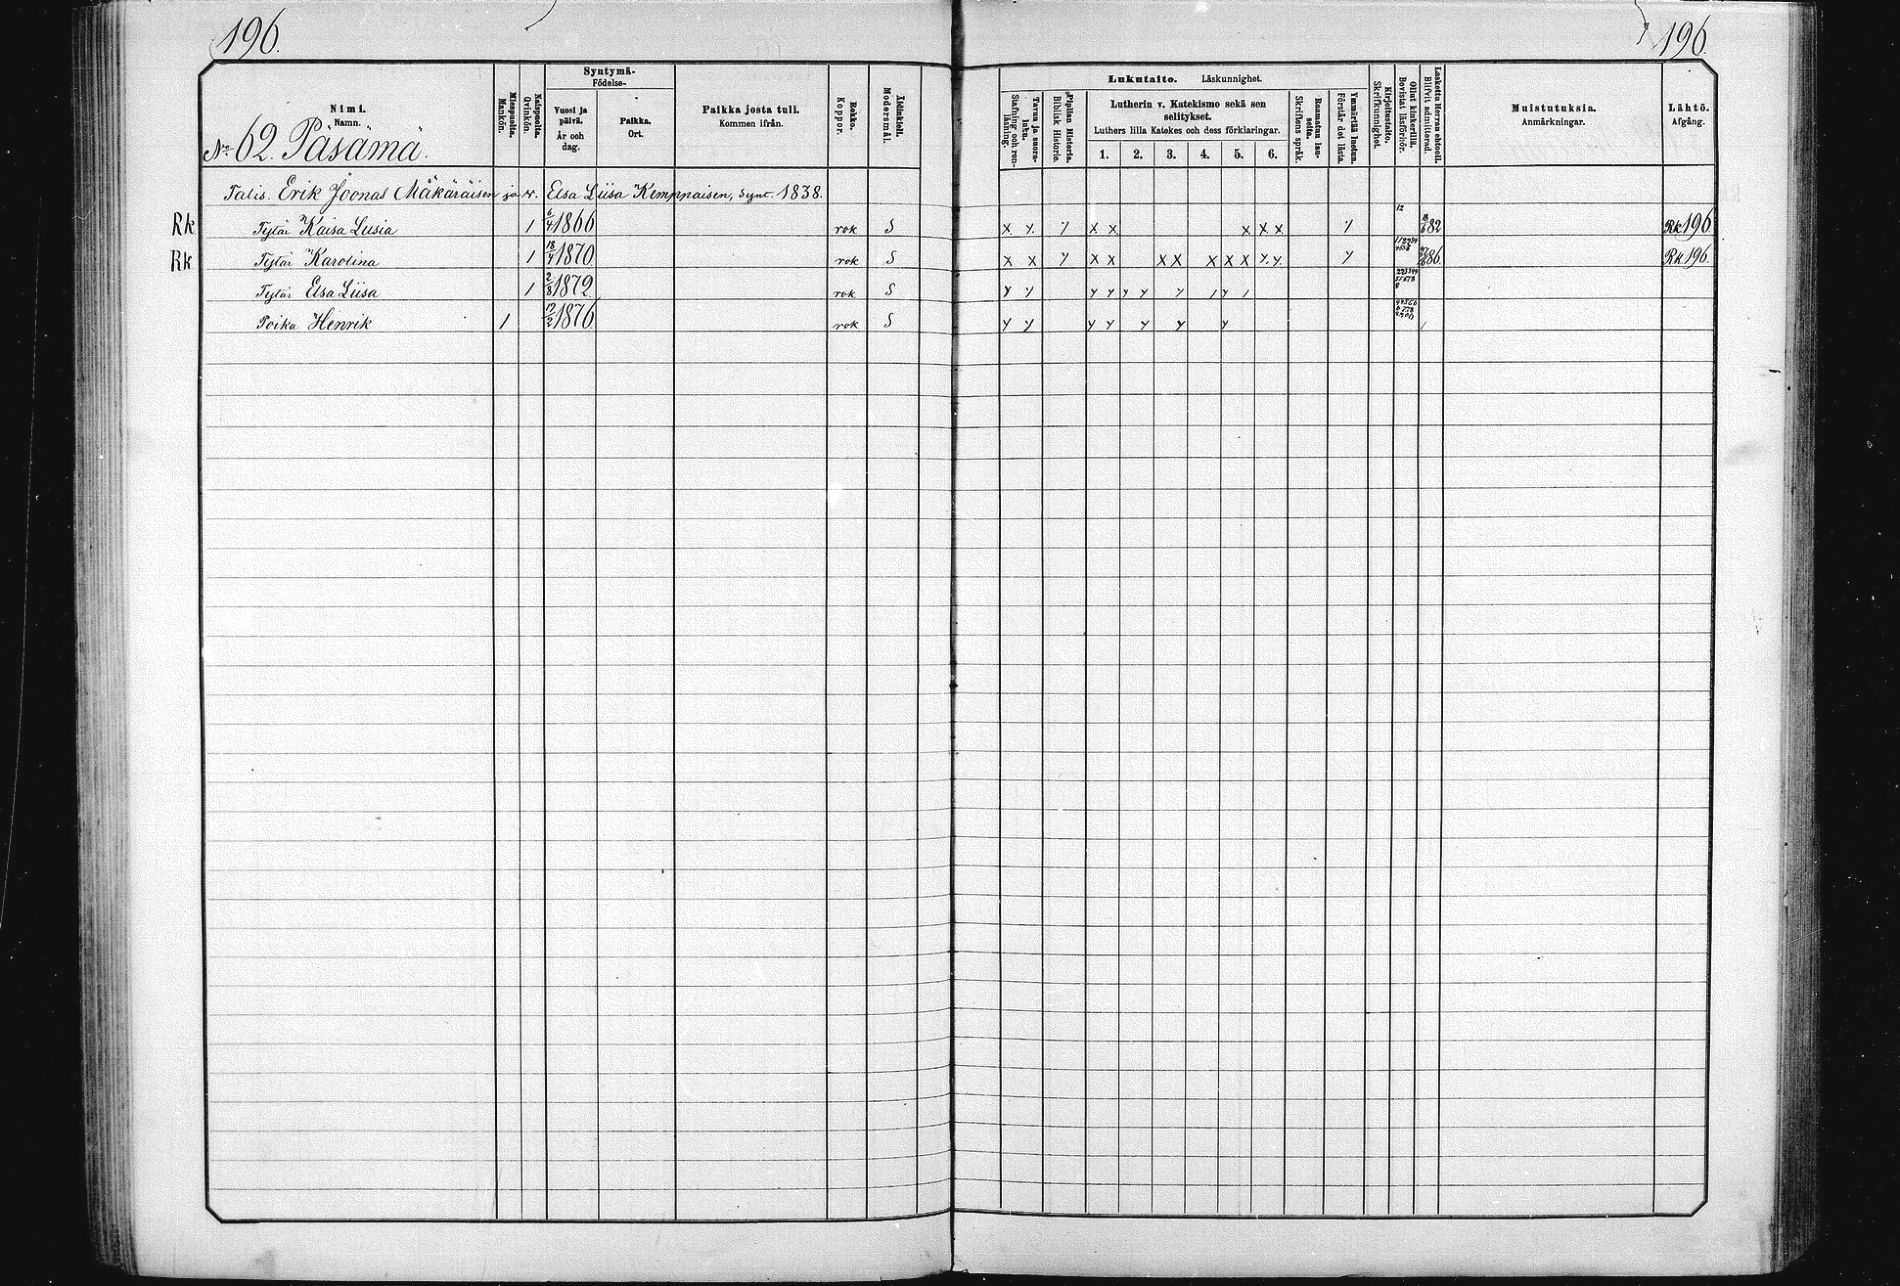 196.
196
Nimi.
Namn.
No 62. Päsämä.
Miespuolta.
Mankön.
Naispuolta.
Qvinkön.
Syntymä-
Födelse-
Vuosi ja päivä.
År och dag.
Paikka.
Ort.
Paikka josta tuli.
Kommen ifrån.
Rokko.
Koppor.
Äidinkieli.
Modersmål.
Lukutaito. Läskunnighet.
Tavuu ja suora-luku.
Stafning och ren-läsning.
Piplian Historia.
Biblisk Historie.
Lutherin v. Katekismo sekä sen selitykset.
Luthers lilla Katekes och dess förklaringar.
1. 2. 3. 4. 5. 6.
Raamatun lau-seita.
Skriftens språk.
Ymmärtää luetun.
Förstår det lästa.
Kirjoitustaito.
Skrifkunnighet.
Ollut kinkerillä.
Bevistat läsförhör.
Laskettu Herran ehtoool.
Blifvit admitterad.
Muistutuksia.
Anmärkningar.
Lähtö.
Afgång.
Talis. Erik Joonas Mäkäräisen ja v. Elsa Liisa Kemppaisen, synt. 1838.
Rk Tytär Kaisa Lusia 1 6/4 1866 rok S x x y x x x x x y 12 82 Rk 196
Rk Tytär Karolina 1 18/4 1870 rok S x x y x x x x x x x y y y 86 Rk 196
Tytär Elsa Liisa 1 2/8 1872 rok S y y y y y y y / y /
Poika Henrik 1 17/2 1876 rok S y y y y y y y